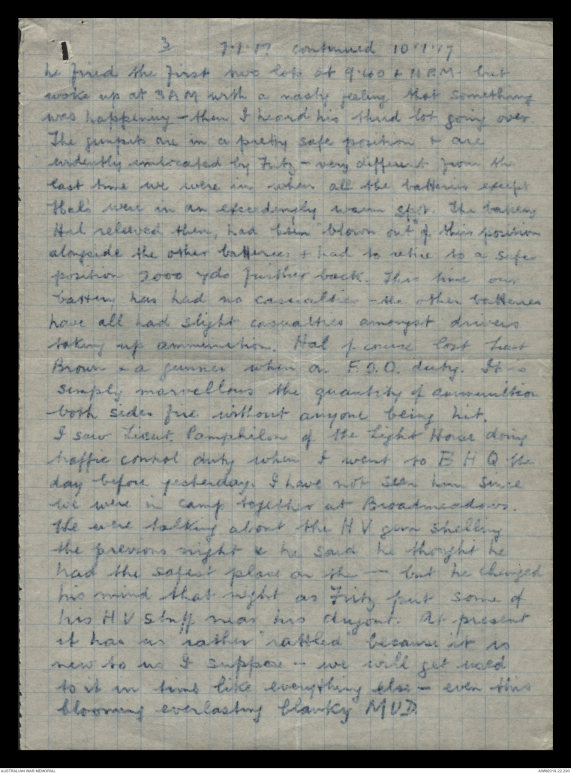 3 7.1.17 continued 10.1.17
he fired the first two lots at 9.40 & 11 P.M. but
woke up at 3 AM with a nasty feeling that something
was happening – then I heard his third lot going over.
The gunpits are in a pretty safe position & are
evidently unlocated by Fritz – very different from the
last time we were in when all the batteries except
Hal's were in an exceedingly warm spot. The battery
Hal relieved then, had been "blown out" of this position
alongside the other batteries & had to retire to a safe
position 2000 yds further back. This time our
battery has had no casualties – the other batteries
have all had slight casualties amongst drivers
taking up ammunition. Hal of course lost Lieut
Brown & a gunner when on F.O.O. duty. It is
simply marvellous the quantity of ammunition
both sides fire without anyone being hit.
I saw Lieut. Pamphilon of the Light Horse doing
traffic control duty when I went to BHQ the
day before yesterday. I have not seen him since
we were in camp together at Broadmeadows.
We were talking about the HV gun shelling
the previous night & he said he thought he
had the safest place on the — but he changed
his mind that night as Fritz put some of
his HV stuff near his dugout. At present
it has us rather "rattled" because it is
new to us I suppose – we will get used
to it in time like everything else – even this
blooming everlasting blanky MUD.
AUSTRALIAN WAR MEMORIAL